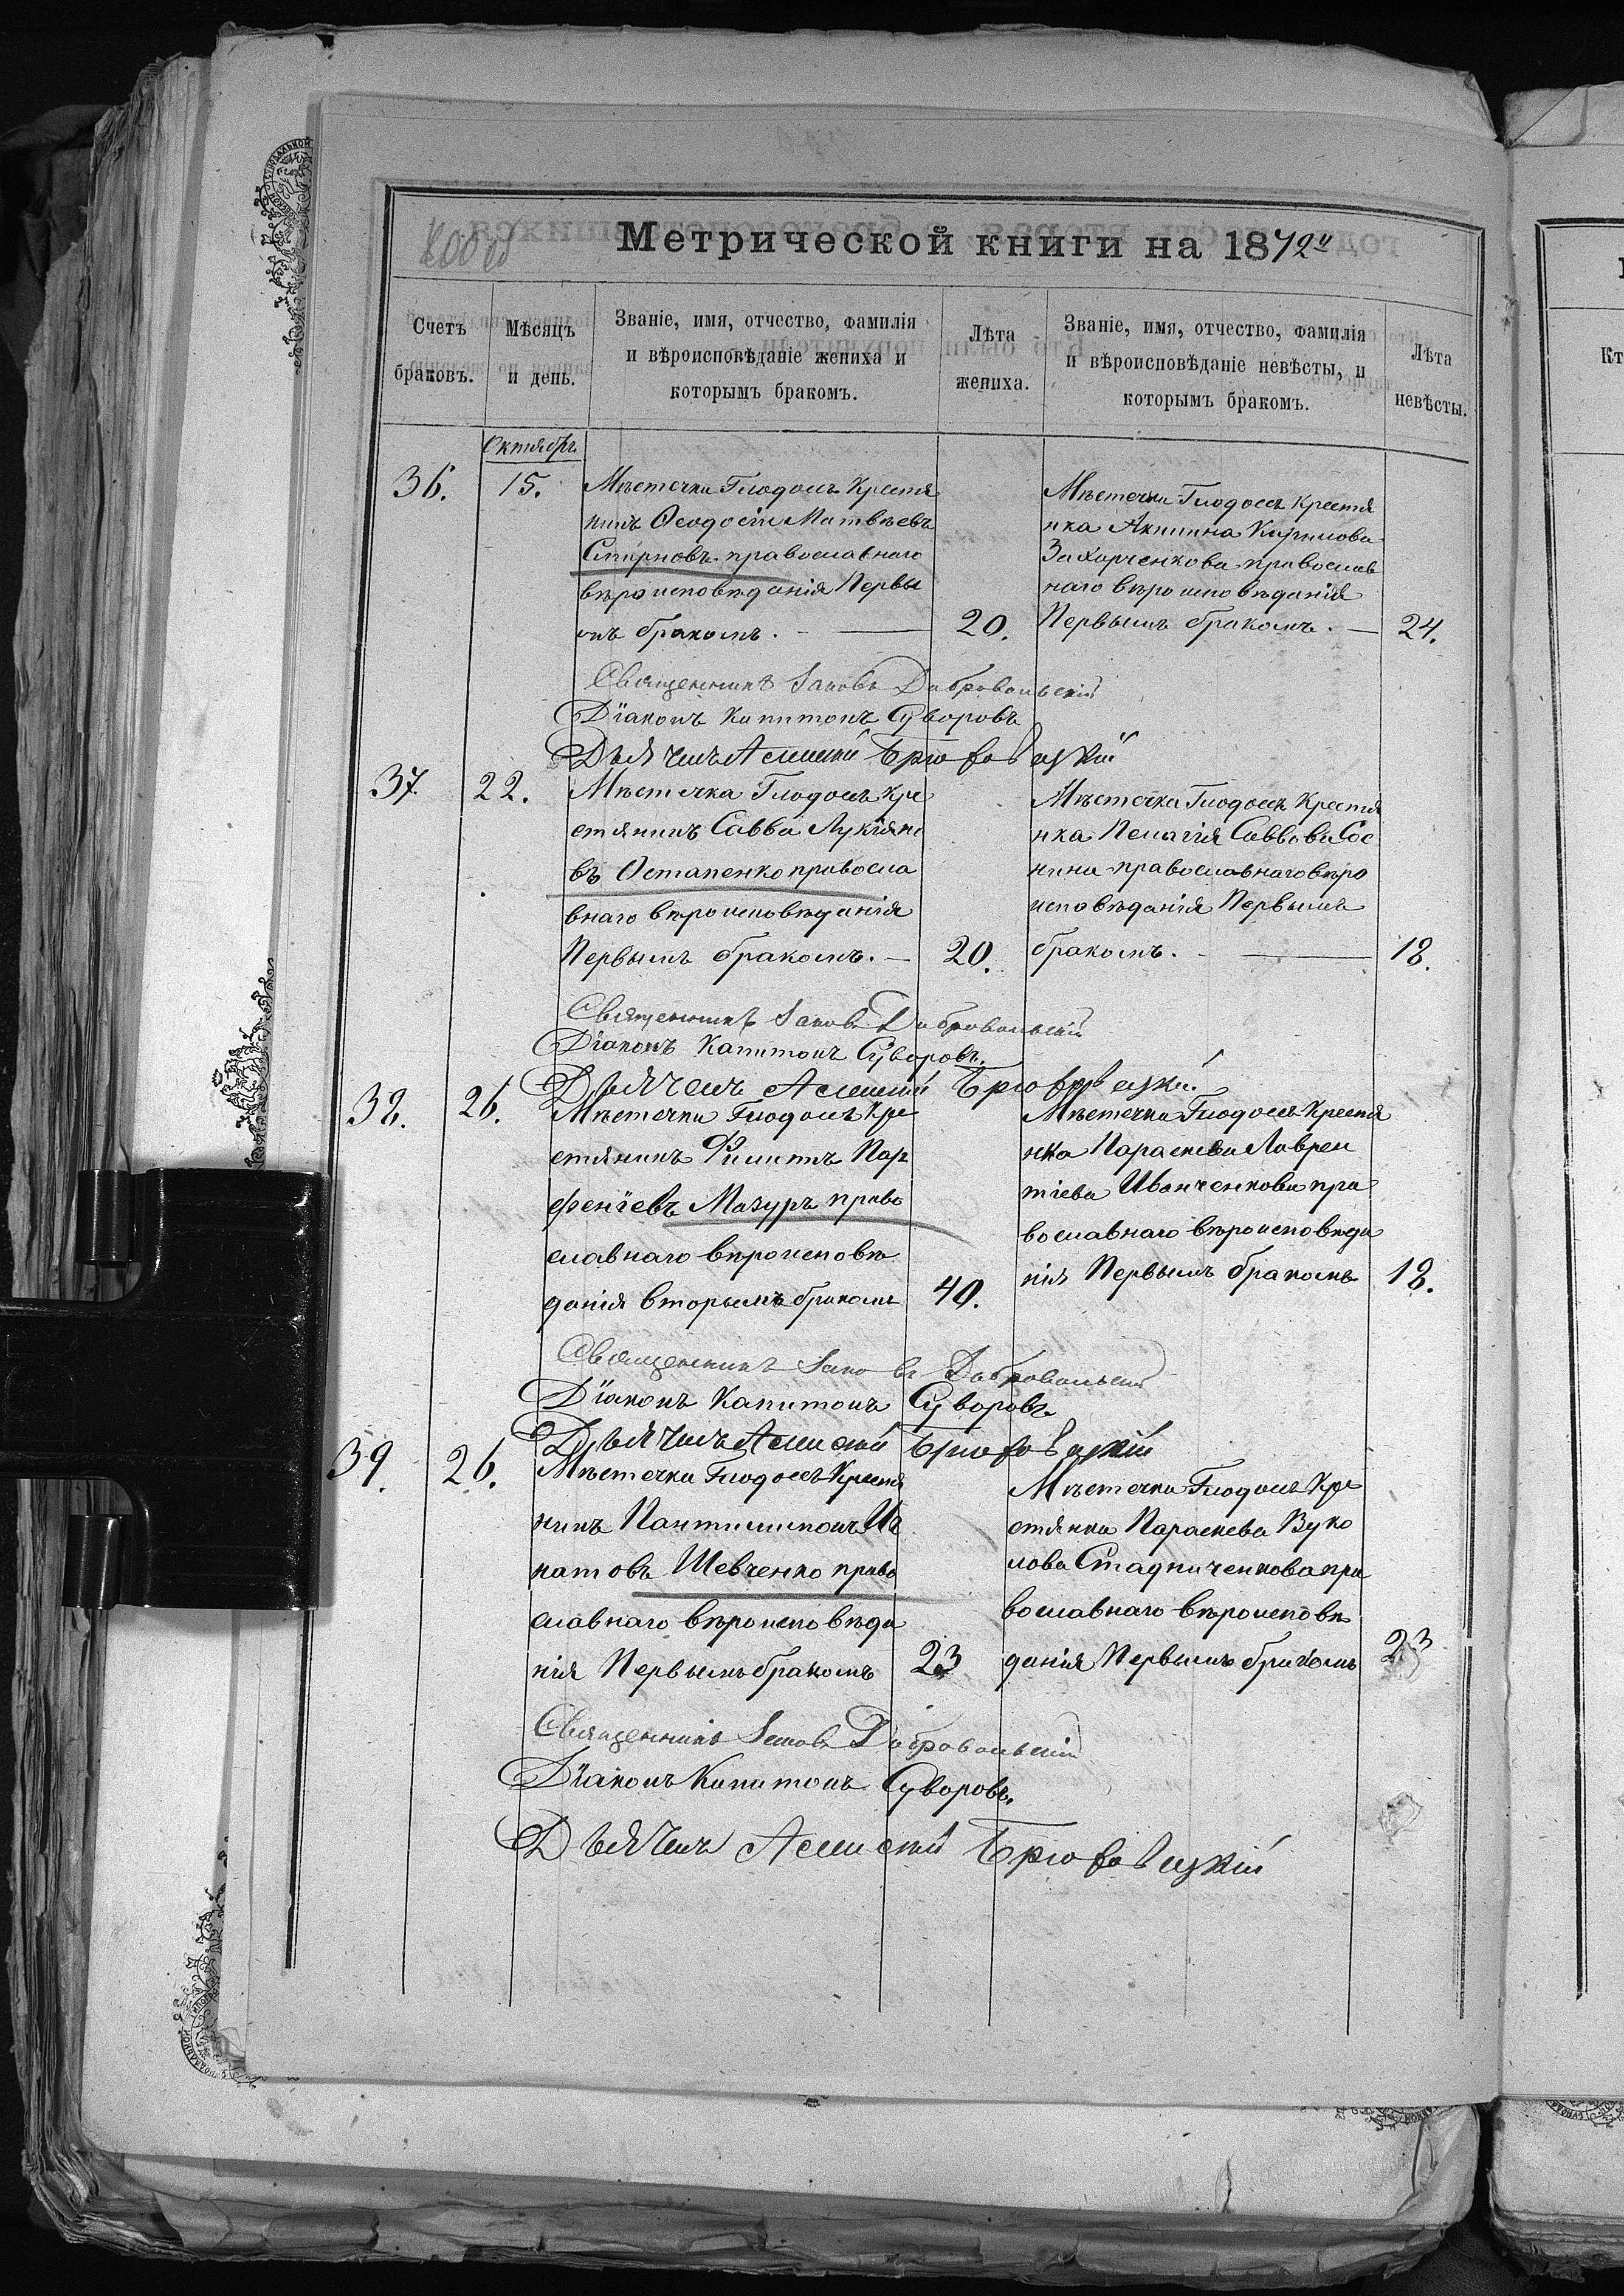 Метрической книги на 1872й
Счетъ браковъ.
Мѣсяцъ и день.
Званіе, имя, отчество, фамилія
и вѣроисповѣданіе жениха и
которымъ бракомъ.
Лѣта
жениха.
Званіе, имя, отчество, фамилія
и вѣроисповѣданіе невѣсты, и
которымъ бракомъ.
Лѣта
невѣсты.
Октябрь
36. 15.
Мѣстечка Глодосъ Крестя
нинъ Ѳеодосій Матвѣевъ
Смирновъ православнаго
вѣроисповѣданія Первы
мъ бракомъ. 20.
Мѣстечка Глодосъ Крестя
нка Акилина Кирилова
Захарченкова православ
наго вѣроисповѣданія
Первымъ бракомъ. 24.
Священникъ Іаковъ Добровольскій
Діаконъ Капитонъ Суворовъ
Дьячекъ Алексей Брюховецкій
37. 22.
Мѣстечка Глодосъ Кре
стянинъ Савва Лукіяно
въ Остапенко правосла
внаго вѣроисповѣданія
Первымъ бракомъ. 20.
Мѣстечка Глодосъ Крестя
нка Пелагія Саввова Сос
нина православнаго вѣро
исповѣданія Первымъ
бракомъ. 18.
Священникъ Іаковъ Добровольскій
Діаконъ Капитонъ Суворовъ.
Дьячекъ Алексей Брюховецкій
38. 26.
Мѣстечка Глодосъ Кре
стянинъ Филиппъ Пар
феніевъ Мазуръ право
славнаго вѣроисповѣ
данія вторымъ бракомъ 40.
Мѣстечка Глодосъ Крестя
нка Параскева Лаврен
тіева Иванченкова пра
вославнаго вѣроисповѣда
нія Первымъ бракомъ 18.
Священникъ Іаковъ Добровольскій
Діаконъ Капитонъ Суворовъ
Дьячекъ Алексей Брюховецкій
39. 26.
Мѣстечка Глодосъ Крестя
нинъ Пантилимонъ Иг
натовъ Шевченко право
славнаго вѣроисповѣда
нія Первымъ бракомъ 23
Мѣстечка Глодосъ Кре
стянка Параскева Вуко
лова Стадниченкова пра
вославнаго вѣроисповѣ
данія Первымъ бракомъ 23
Священникъ Іаковъ Добровольскій
Діаконъ Капитонъ Суворовъ.
Дьячекъ Алексей Брюховецкій